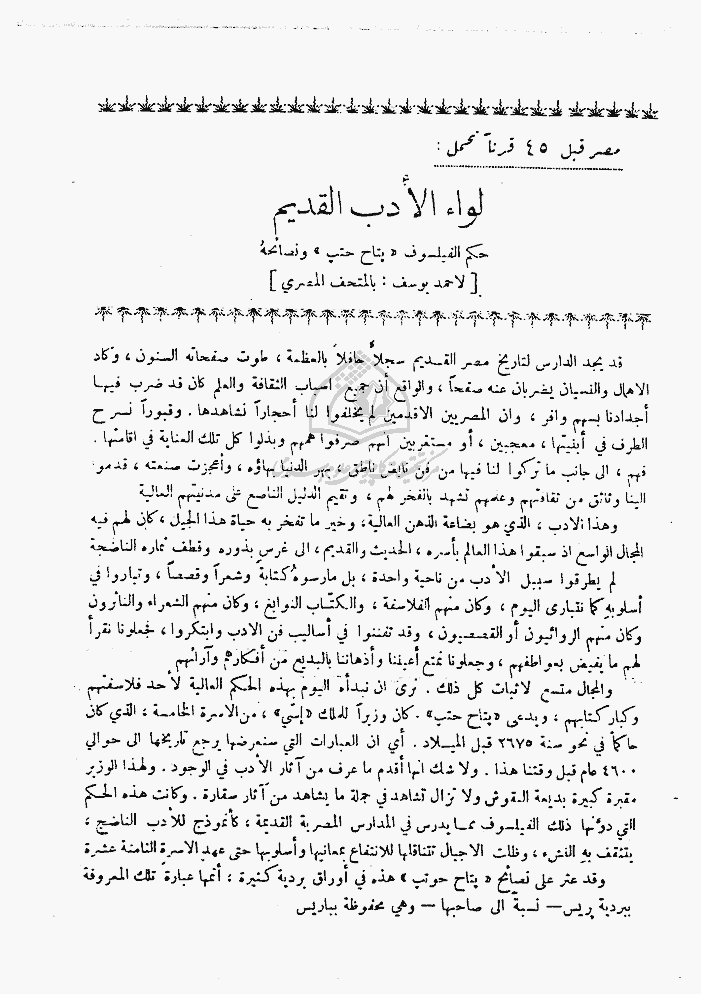 مصر قبل ٤٥ قرناً تحمل :
لواء الأدب القديم
حكم الفيلسوف «بتاح حتب» ونصائحهُ
[ لاحمد يوسف : بالمتحف المصري ]
قد يجد الدارس لتاريخ مصر القديم سجلاًّ حافلاً بالعظمة ، طوت صفحاته السنون ، وكاد
الاهمال والنسيان يضربان عنه صفحاً ، والواقع أن جميع اسباب الثقافة والعلم كان قد ضرب فيها
أجدادنا بسهم وافر ، وان المصريين الاقدمين لم يخلفوا لنا أحجاراً نشاهدها . وقبوراً نسرح
الطرف في أبنيتها ، معجبين ، أو مستغربين انهم صرفوا هممهم وبذلوا كل تلك العناية في اقامتها .
فهم ، الى جانب ما تركوا لنا فيها من فن نابض ناطق ، بهر الدنيا بهاؤه ، وأعجزت صنعته ، قدموا
الينا وثائق من ثقافتهم وعلمهم تشهد بالفخر لهم ، وتقيم الدليل الناصع على مدنيتهم العالية
وهذا الادب ، الذي هو بضاعة الذهن العالية ، وخير ما تفخر به حياة هذا الجيل ، كان لهم فيه
المجال الواسع اذ سبقوا هذا العالم بأسره ، الحديث والقديم ، الى غرس بذوره وقطف ثماره الناضجة
لم يطرقوا سبيل الأدب من ناحية واحدة ، بل مارسوهُ كتابةً وشعراً وقصصاً ، وتباروا في
أسلوبه كما نتبارى اليوم ، وكان منهم الفلاسفة ، والكتّاب النوابغ ، وكان منهم الشعراء والناثرون
وكان منهم الروائيون أو القصصيون ، وقد تفننوا في أساليب فن الادب وابتكروا ، فجعلونا نقرأ
لهم ما يفيض بعواطفهم ، وجعلونا نمتع أعيننا وأذهاننا بالبديع من أفكارهم وآرائهم
والمجال متسع لاثبات كل ذلك . نرى ان نبدأه اليوم بهذه الحكم العالية لأحد فلاسفتهم
وكبار كتابهم ، ويدعى «بتاح حتب» . كان وزيراً للملك «إسّي» ، من الاسرة الخامسة ، الذي كان
حاكماً في نحو سنة ٢٦٧٥ قبل الميلاد . أي ان العبارات التي سنعرضها يرجع تاريخها الى حوالي
٤٦٠٠ عام قبل وقتنا هذا . ولا شك انها أقدم ما عرف من آثار الأدب في الوجود . ولهذا الوزير
مقبرة كبيرة بديعة النقوش ولا تزال تشاهد في جملة ما يشاهد من آثار سقارة . وكانت هذه الحكم
التي دوّنها ذلك الفيلسوف مما يدرس في المدارس المصرية القديمة ، كأنموذج للأدب الناضج ،
يتثقف به النشء ، وظلت الاجيال تتناقلها للانتفاع بمعانيها وأسلوبها حتى عهد الاسرة الثامنة عشرة
وقد عثر على نصائح «بتاح حوتب» هذه في أوراق بردية كثيرة ، أتمها عبارة تلك المعروفة
ببردية پريس — نسبةً الى صاحبها — وهي محفوظة بباريس